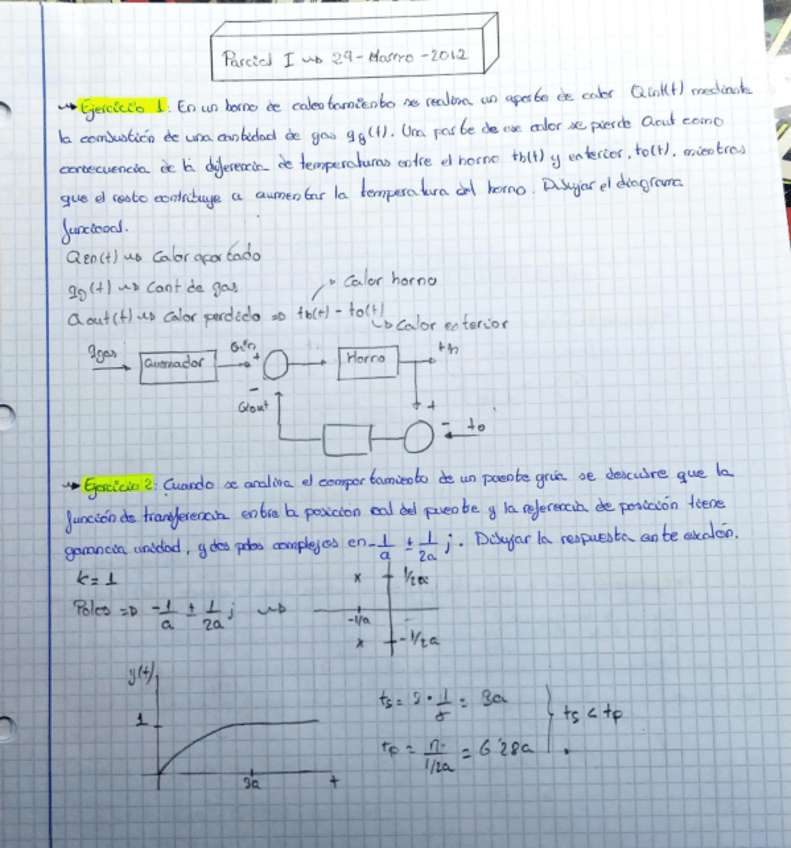 Parcial I → 29 - Marzo - 2012
→ Ejercicio 1: En un horno de calentamiento se realiza un aporte de calor Qin(t) mediante
la combustión de una cantidad de gas qg(t). Una parte de ese calor se pierde Qout como
consecuencia de la diferencia de temperaturas entre el horno th(t) y exterior, to(t), mientras
que el resto contribuye a aumentar la temperatura del horno. Dibujar el diagrama
funcional.
Qin(t) → Calor aportado
qg(t) → Cant de gas
→ Calor horno
Qout(t) → Calor perdido ⇒ th(t) - to(t)
↳ Calor exterior
qgas
Quemador
Qin
+
Horno
th
-
Qout
+
- to
→ Ejercicio 2: Cuando se analiza el comportamiento de un puente grúa se descubre que la
función de transferencia entre la posición real del puente y la referencia de posición tiene
ganancia unidad, y dos polos complejos en -1/a ± 1/2a j. Dibujar la respuesta ante escalón.
k = 1
Polos ⇒ -1/a ± 1/2a j →
x
1/2a
-1/a
x
-1/2a
y(t)
1
3a
t
ts = 3 · 1/σ = 3a
tp = π/1/2a = 6'28a
ts < tp